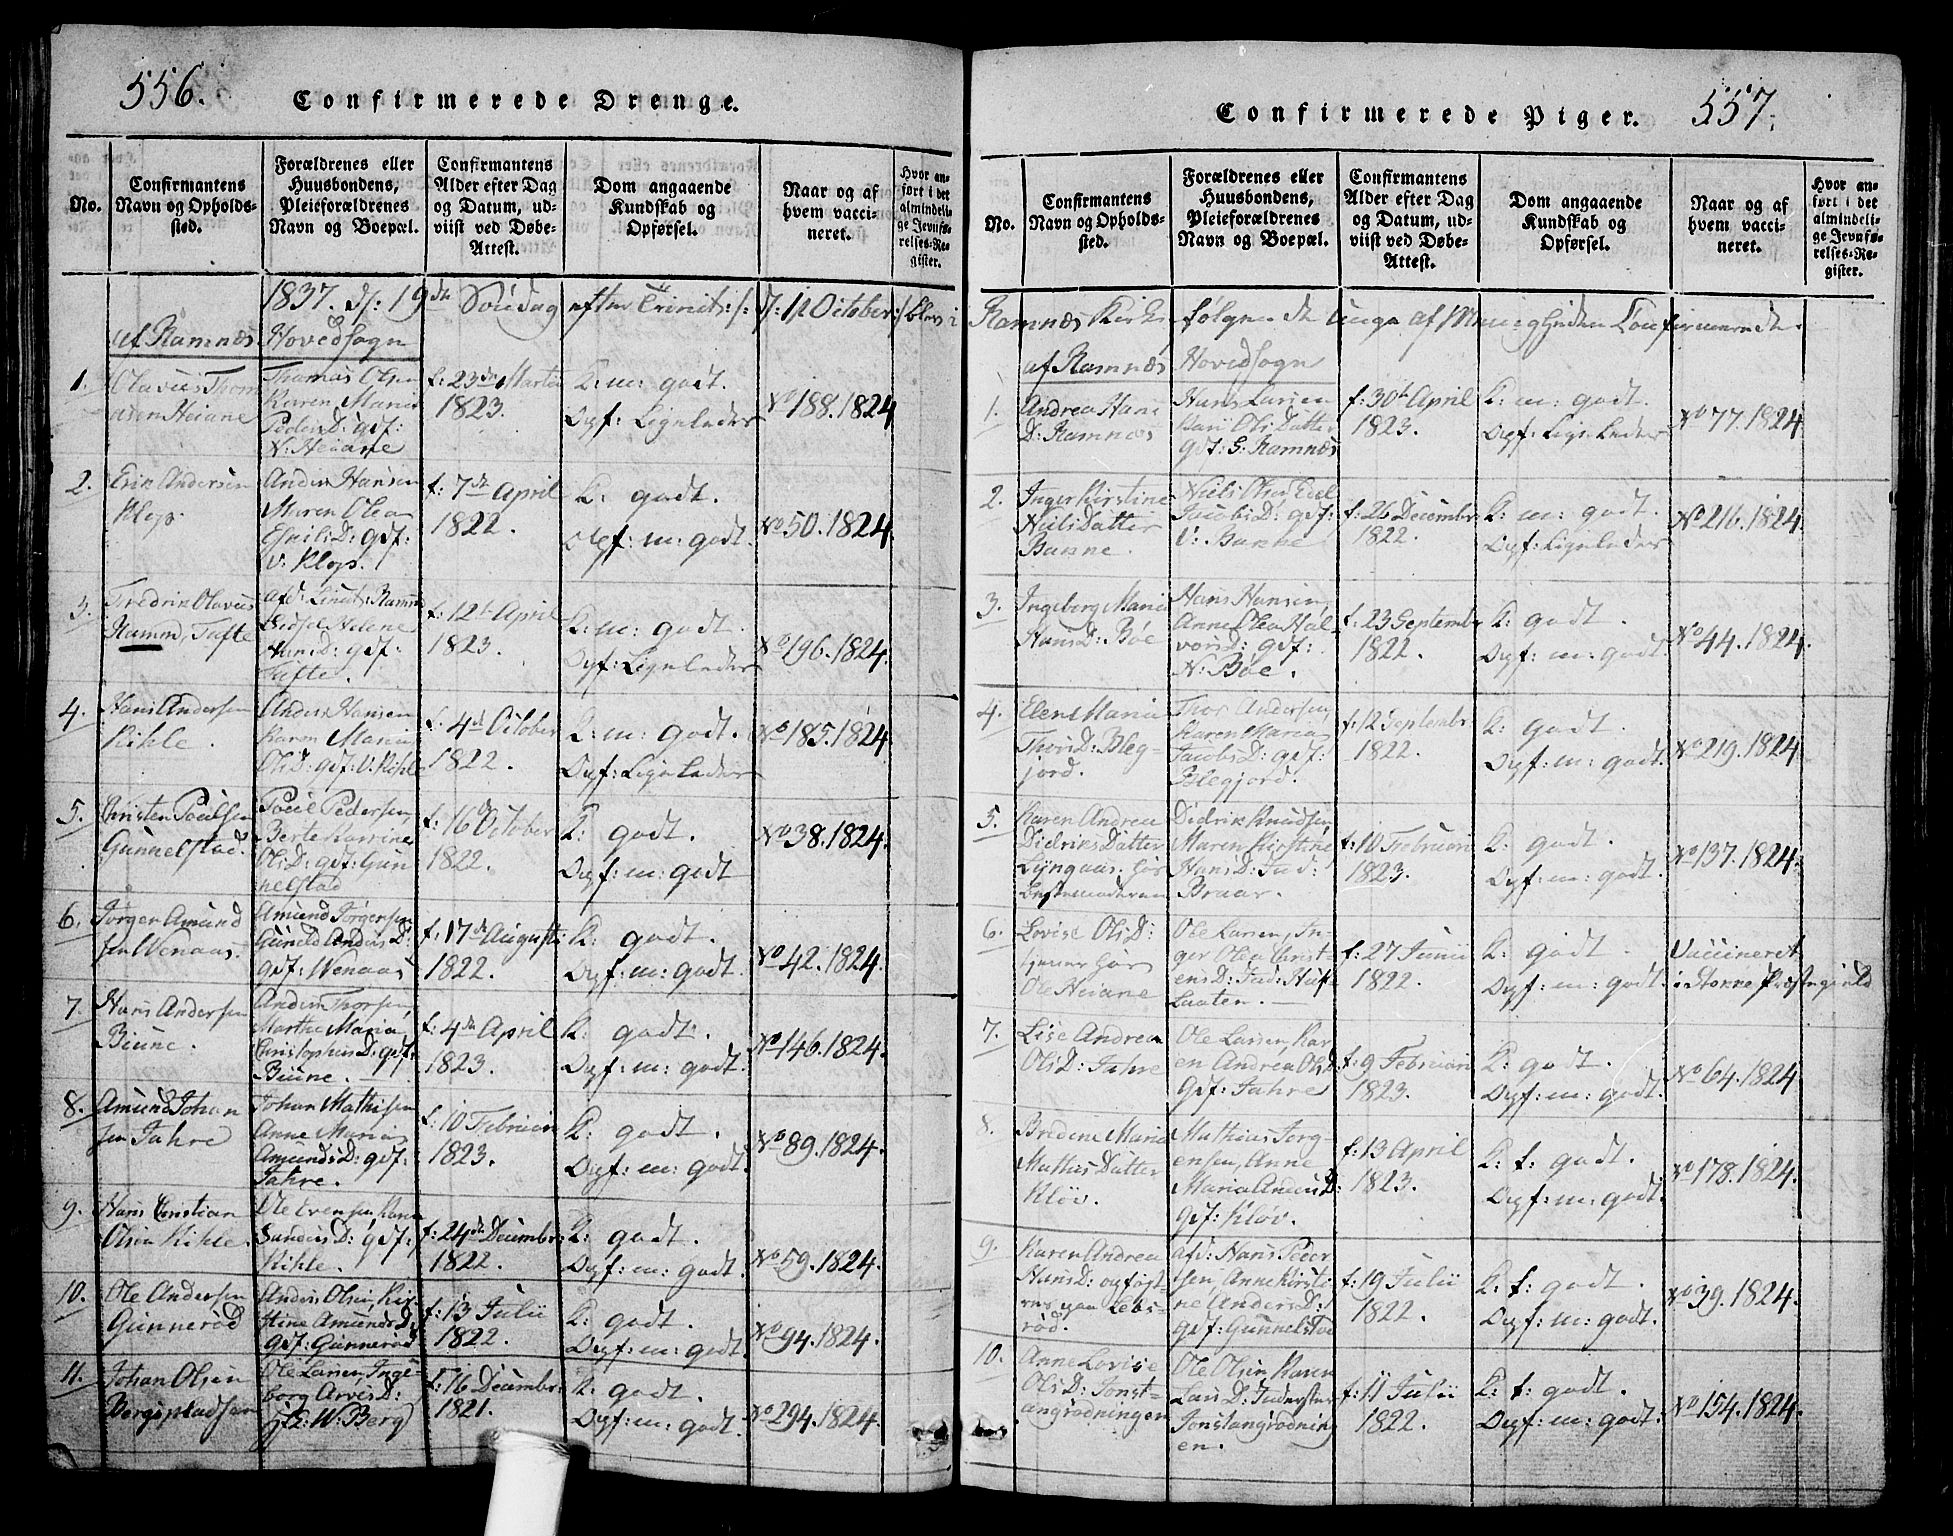 556.
Confirmerede Drenge.
No.
Confirmantens
Navn og Opholds-
sted.
Forældrenes eller
Huusbondens,
Pleieforældrenes
Navn og Boepæl.
Confirmantens
Alder efter Dag
og Datum, ud-
viist ved Døbe-
Attest.
Dom angaaende
Kundskab og
Opførsel.
Naar og af
hvem vacci-
neret.
Hvor an-
ført i det
almindeli-
ge Jevnfø-
relses-Re-
gister.
1837. d: 19de Søndag efter Trinit: d: 1ste October blev i
af Ramnæs Hovedsogn
1.
Olavus Thom
asen Heiane
Thomas Olsen
Karen Maria
Peders D: gdf:
N: Heiane
f: 23de Martii
1823.
K: m: godt.
Opf: Ligeledes
No 188. 1824
2.
Erik Andersen
Klop.
Anders Hansen
Maren Olea
Emils D: gdf:
v. Klop.
f: 7de April
1822.
K: godt.
Opf: m: godt.
No 50. 1824
3.
Fredrik Olavus
Ramm, Tufte
afd: Lieut: Ramm
Helene
Hans D: gdf:
Tufte.
f: 12te April
1823.
K: m: godt.
Opf: Ligeledes
No 196. 1824.
4.
Hans Andersen
Kihle.
Anders Hansen
Karen Maria
Ols D: gdf: V: Kihle
f: 4de October
1822.
K: m: godt.
Opf: Ligeledes
No 185. 1824
5.
Christen Poulsen
Gunnelstad.
Poul Pedersen,
Berte Karrine
Ols D: gdf: Gun
nelstad
f: 16 October
1822.
K: godt.
Opf: m: godt
No 38. 1824.
6.
Jørgen Amund
sen Wenaas.
Amund Jørgensen
Gunild Anders D:
gdf: Wenaas
f: 17de Augusti
1822.
K: godt.
Opf: m: godt.
No 42. 1824.
7.
Hans Andersen
Biune.
Anders Thorsen,
Marthe Maria
Christophers D: gdf:
Biune.
f: 4de April
1823.
K: godt.
Opf: m: godt.
No 146. 1824.
8.
Amund Johan
sen Jahre
Johan Mathisen
Anne Maria
Amunds D: gdf:
Jahre.
f: 10 Februari
1823.
K: godt.
Opf: m: godt.
No 89. 1824.
9.
Hans Christian
Olsen Kihle.
Ole Evensen, Karen
Sanders D: gdf:
Kihle.
f: 24de Decembr:
1822.
K: godt.
Opf: m: godt.
No 59. 1824.
10.
Ole Andersen
Gunnerød
Anders Olsen, Kir-
stine Amunds D:
gdf: Gunnerød
f: 13 Julii
1822.
K: godt.
Opf: m: godt.
No 94. 1824.
11.
Johan Olsen
Bergspladsen
Ole Larsen, Inge-
borg Arves D:
W: Berg
f: 16 Decembr:
1821.
K: godt.
Opf: m: godt.
No 294. 1824.
Confirmerede Piger.
557.
No.
Confirmantens
Navn og Opholds-
sted.
Forældrenes eller
Huusbondens,
Pleieforældrenes
Navn og Boepæl.
Confirmantens
Alder efter Dag
og Datum, ud-
viist ved Døbe-
Attest.
Dom angaaende
Kundskab og
Opførsel.
Naar og af
hvem vacci-
neret.
Hvor an-
ført i det
almindeli-
ge Jevnfø-
relses-Re-
gister.
Ramnæs Kirke følgende Unge af Menigheden Confirmerede.
af Ramnæs Hovedsogn
1.
Andrea Hans
D: Ramnæs
Hans Larsen
Kari Ols Datter
gdf: G: Ramnæs
f: 30te April
1823.
K: m: godt.
Opf: Ligeledes
No 77. 1824
2.
Inger Kirstine
Niels Datter
Banne.
Niels Olsen, Edel
Jacobs D: gdf:
V: Banne
f: 26 Decembr
1822.
K: m: godt.
Opf: Ligeledes
No 216. 1824.
3.
Ingeborg Maria
Hans D: Bøe
Hans Hansen,
Anne Olea Hal-
vors D: gdf:
N: Bøe.
f: 23 Septembr
1822.
K: godt.
Opf: m: godt.
No 44. 1824.
4.
Elen Maria
Thors D: Bleg-
jord.
Thor Andersen,
Karen Maria
Jacobs D: gdf:
Blegjord.
f: 12 Septembr
1822.
K: godt.
Opf: m: godt.
No 219. 1824
5.
Karen Andrea
Didriks Datter
Lyngaas, hos
Bestemoderen
Didrik Knudsen,
Maren Kirstine
Hans D: Ind:
Braar.
f: 10 Februari
1823.
K: godt.
Opf: m: godt.
No 137. 1824.
6.
Lovise Ols D:
tjener hos
Ole Heiane
Ole Larsen, In-
ger Olea Christ-
ens D: Ind:
Laaten.
f: 27 Junii
1822.
K: godt.
Opf: m: godt.
Vaccineret
i Stokke Præstegield
7.
Lise Andrea
Ols D: Jahre
Ole Larsen, Kar
en Andrea Ols D:
gdf: Jahre
f: 9 Februari
1823.
K: godt.
Opf: m: godt.
No 64. 1824
8.
Bredine Maria
Mathis Datter
Kløv.
Mathias Jørg-
ensen, Anne
Maria Anders D:
gdf: Kløv.
f: 13 April
1823.
K: t: godt.
Opf: m: godt.
No 178. 1824.
9.
Karen Andrea
Hans D: opføst
res paa Lebs-
rød.
afd: Hans Peder
sen, Anne Kirsti-
ne Anders D:
gdf: Gunnelstad
f: 19 Julii
1822.
K: t: godt.
Opf: m: godt.
No 39. 1824.
10.
Anne Lovise
Ols D: Jonst-
angrødningen
Ole Olsen, Karen
Lars D:
Jonstangrødning
en.
f: 11 Julii
1822.
K: t: godt.
Opf: m: godt.
No 154. 1824.